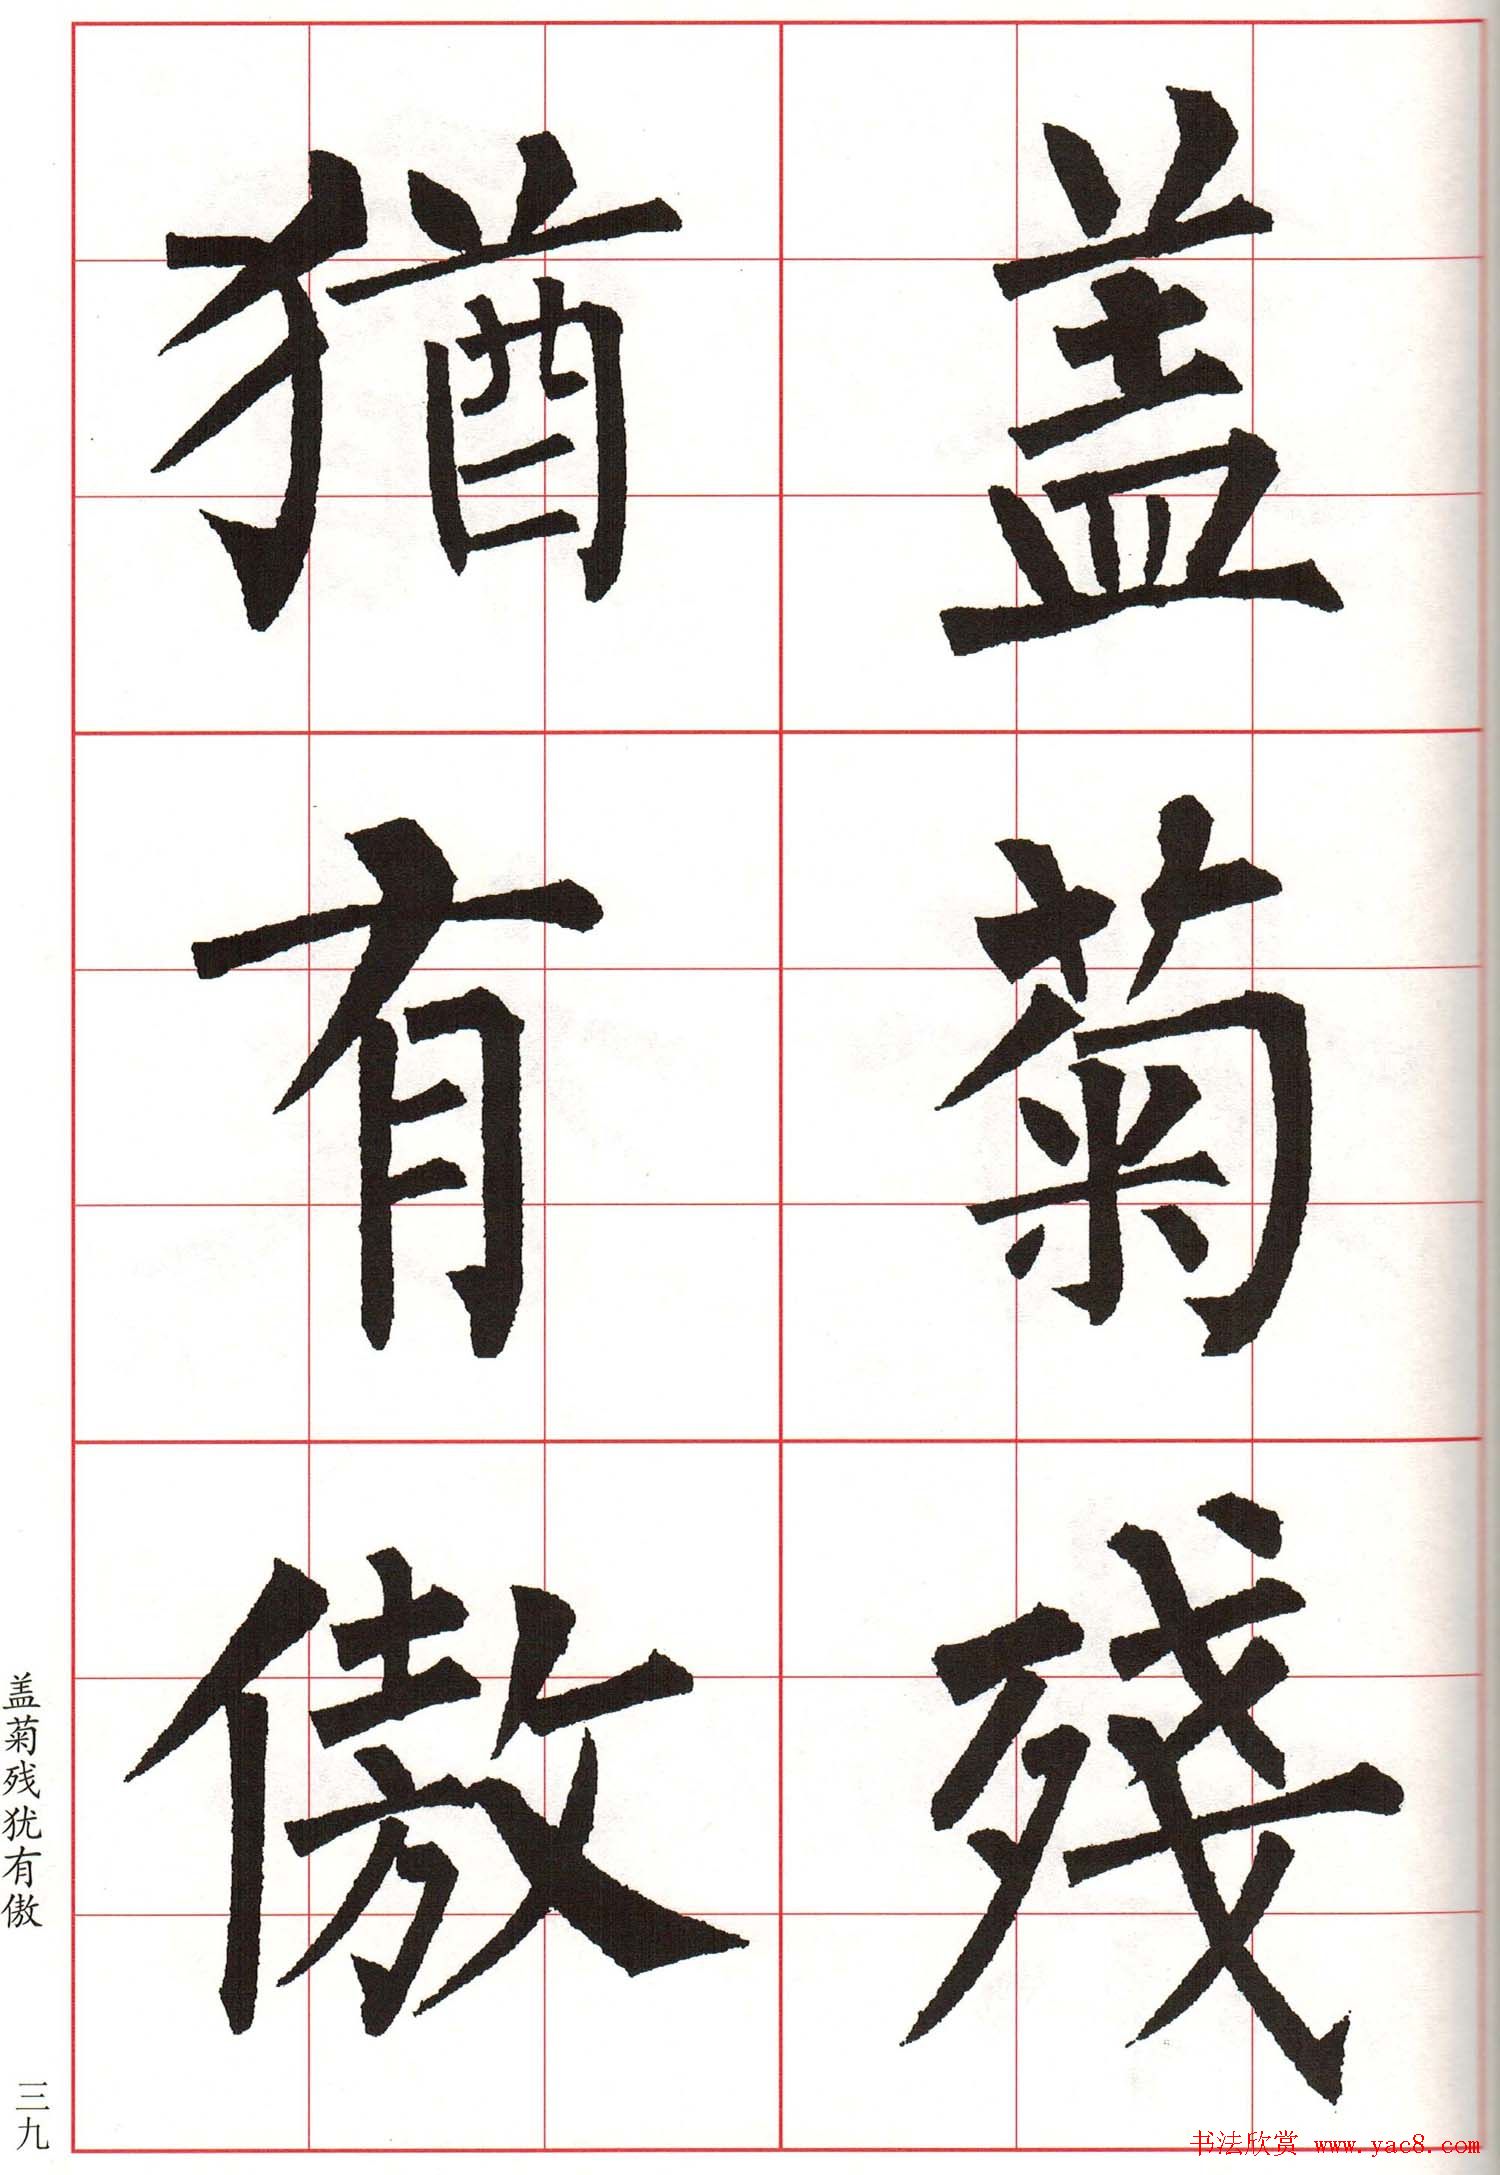 盖菊殘
猶有傲
盖菊残犹有傲
三九
书法欣赏 www.yac8.com